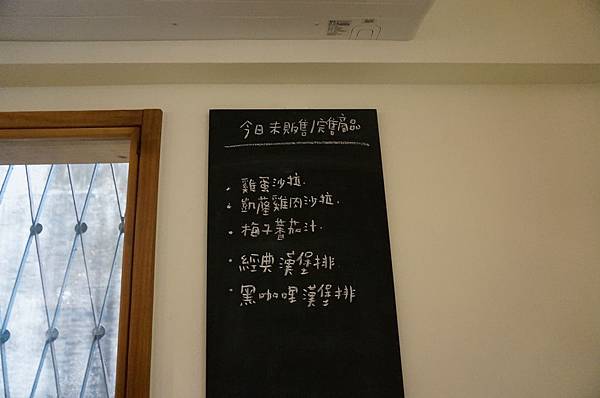 今日未販售/完售商品
· 雞蛋沙拉.
· 凱薩雞肉沙拉.
· 梅子蕃茄汁.
· 經典漢堡排.
· 黑咖哩漢堡排